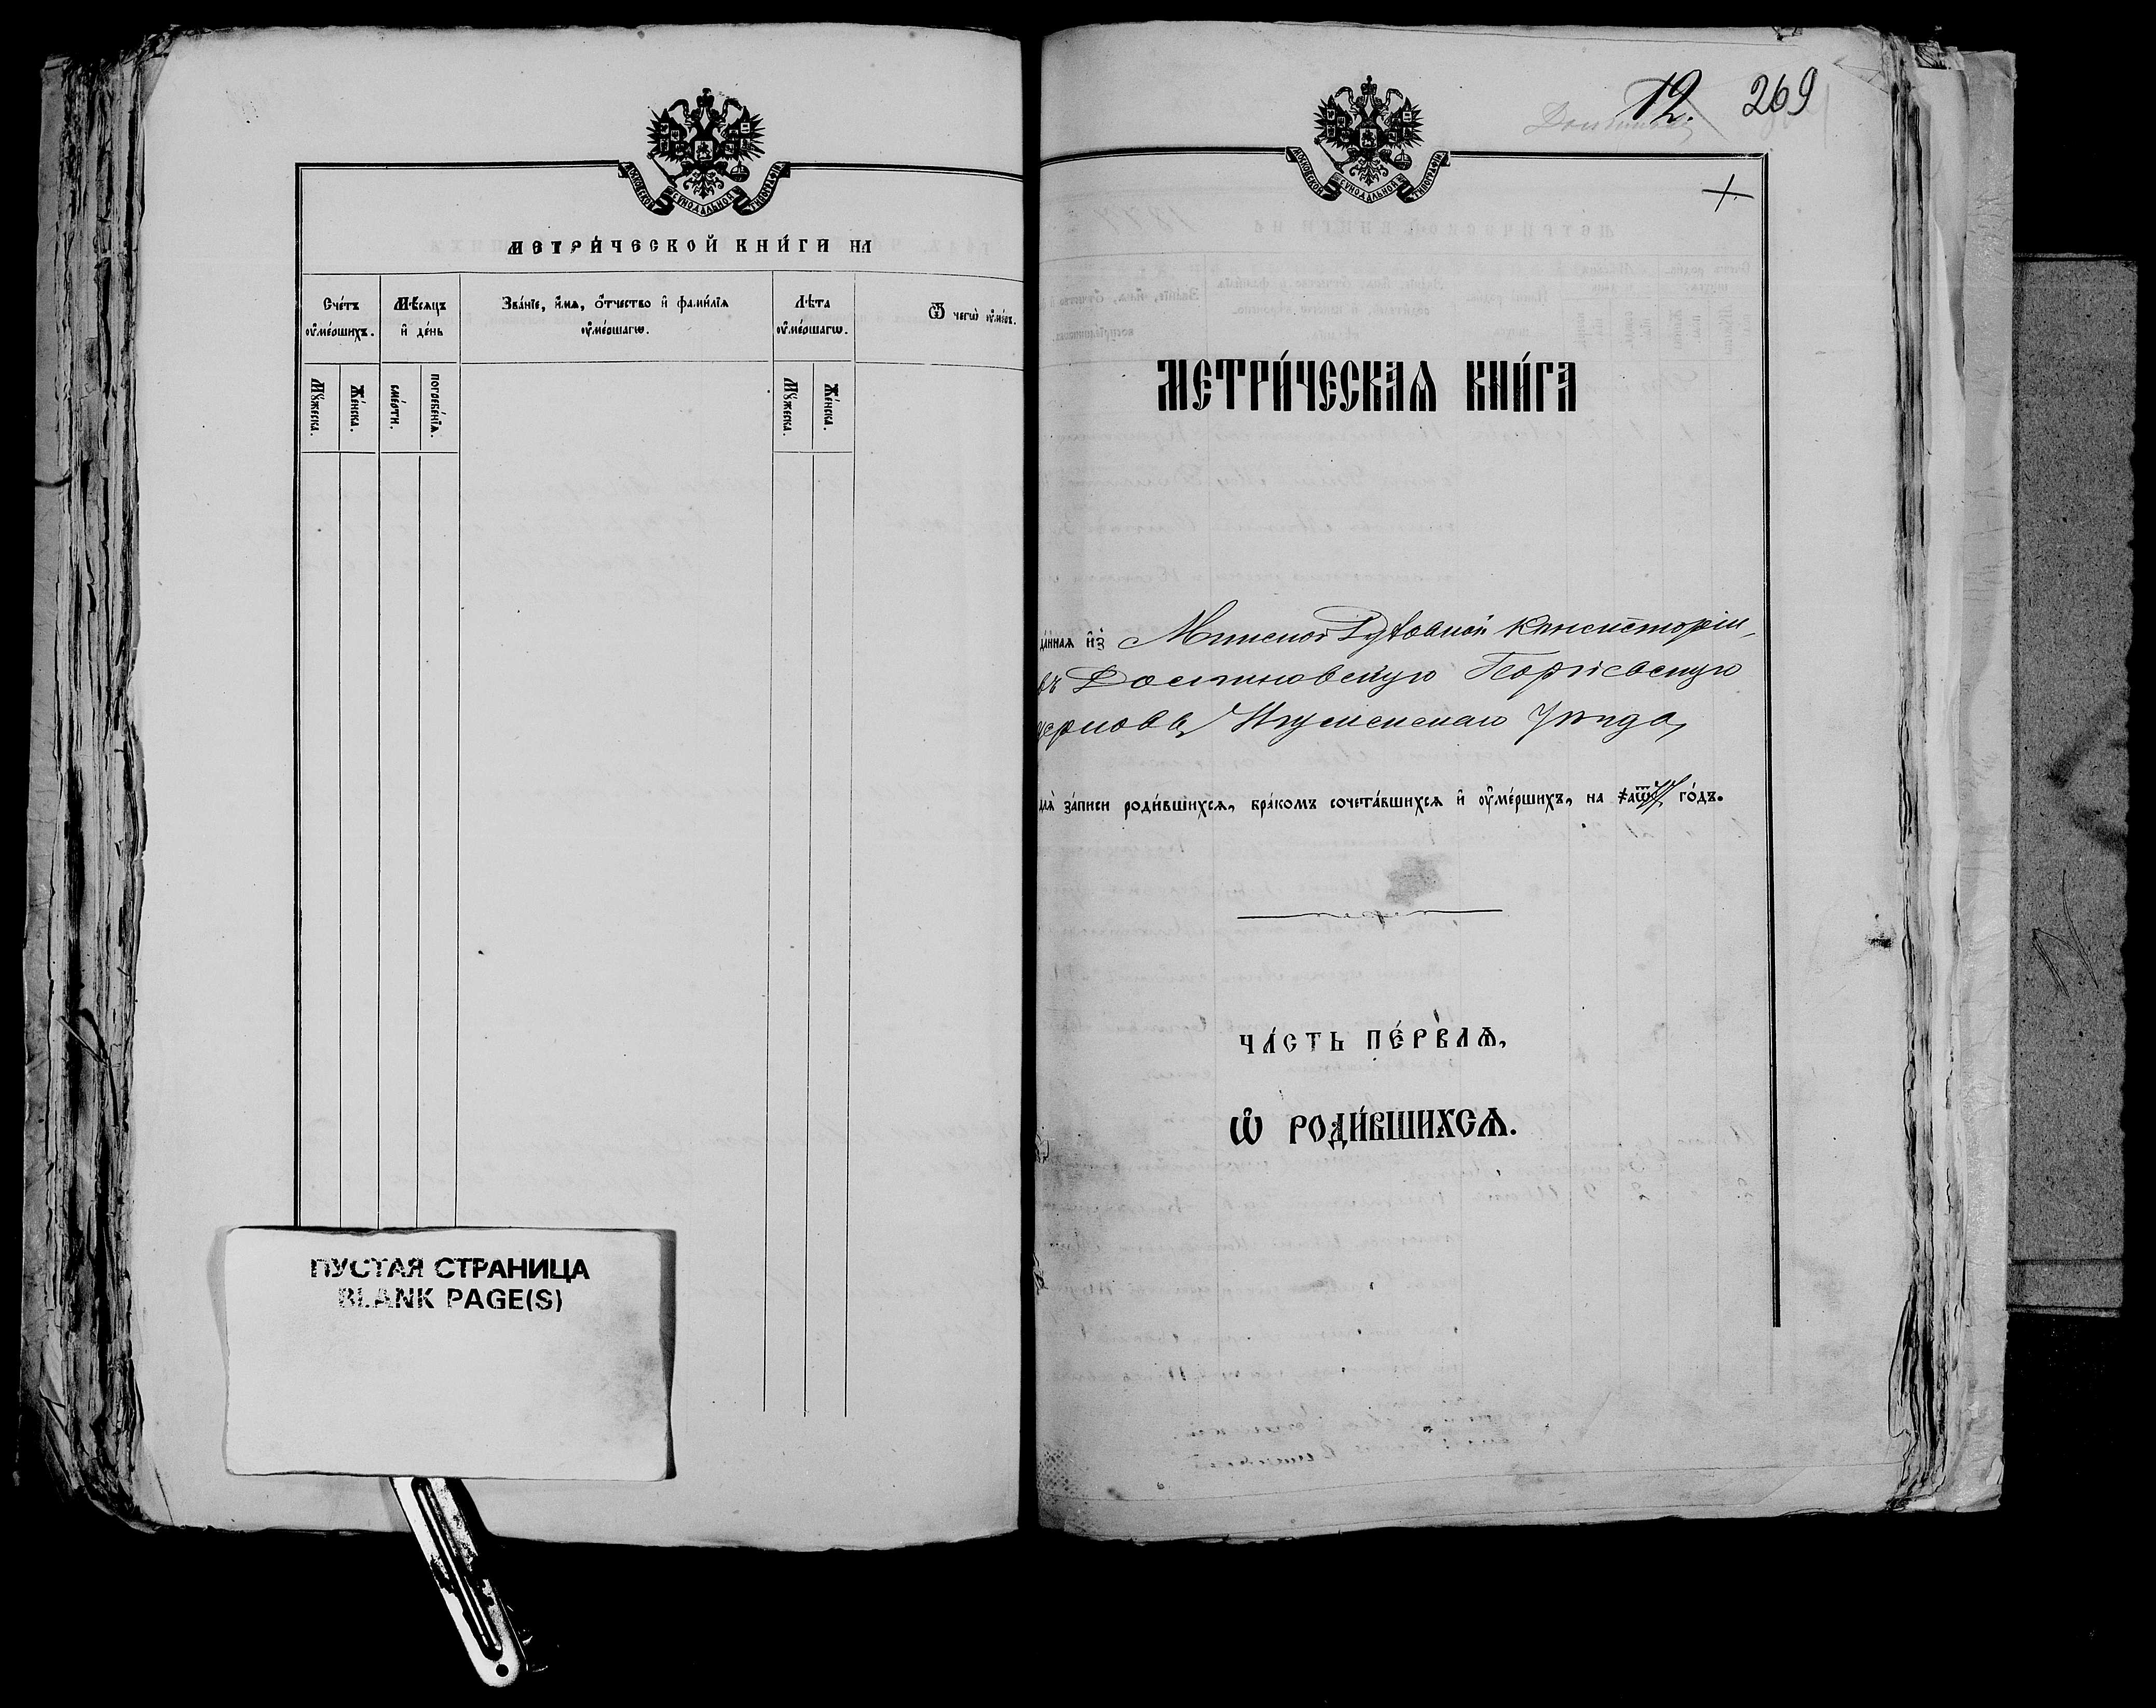 МОСКОВСКОЙ СѴНОДАЛЬНОЙ ТИПОГРАФІИ
МЕТРИ́ЧЕСКОЙ КНИ́ГИ НА
Сче́тъ ᲂу҆ме́ршихъ.
Мѣ́сяцъ и҆ де́нь
Зва́нїе, и҆́мѧ, ѻ҆́тчество и҆ фами́лїѧ ᲂу҆ме́ршагѡ.
Лѣ́та ᲂу҆ме́ршагѡ.
Ѿ чегѡ̀ ᲂу҆́меръ.
Мꙋ́жеска.
Же́нска.
сме́рти.
погребе́нїѧ.
Мꙋ́жеска.
Же́нска.
ПУСТАЯ СТРАНИЦА
BLANK PAGE(S)
12. 269
МОСКОВСКОЙ СѴНОДАЛЬНОЙ ТИПОГРАФІИ
МЕТРИ́ЧЕСКАѦ КНИ́ГА
да́ннаѧ и҆з̾ Минской Духовной Консисторіи,
въ Достиновскую Борисовскую
церковь, Игуменскаго Уѣзда,
длѧ̀ за́писи роди́вшихсѧ, бра́комъ сочета́вшихсѧ и҆ ᲂу҆ме́ршихъ, на го́дъ.
ЧА́СТЬ ПЕ́РВАѦ,
Ѡ҆ РОДИ́ВШИХСѦ.